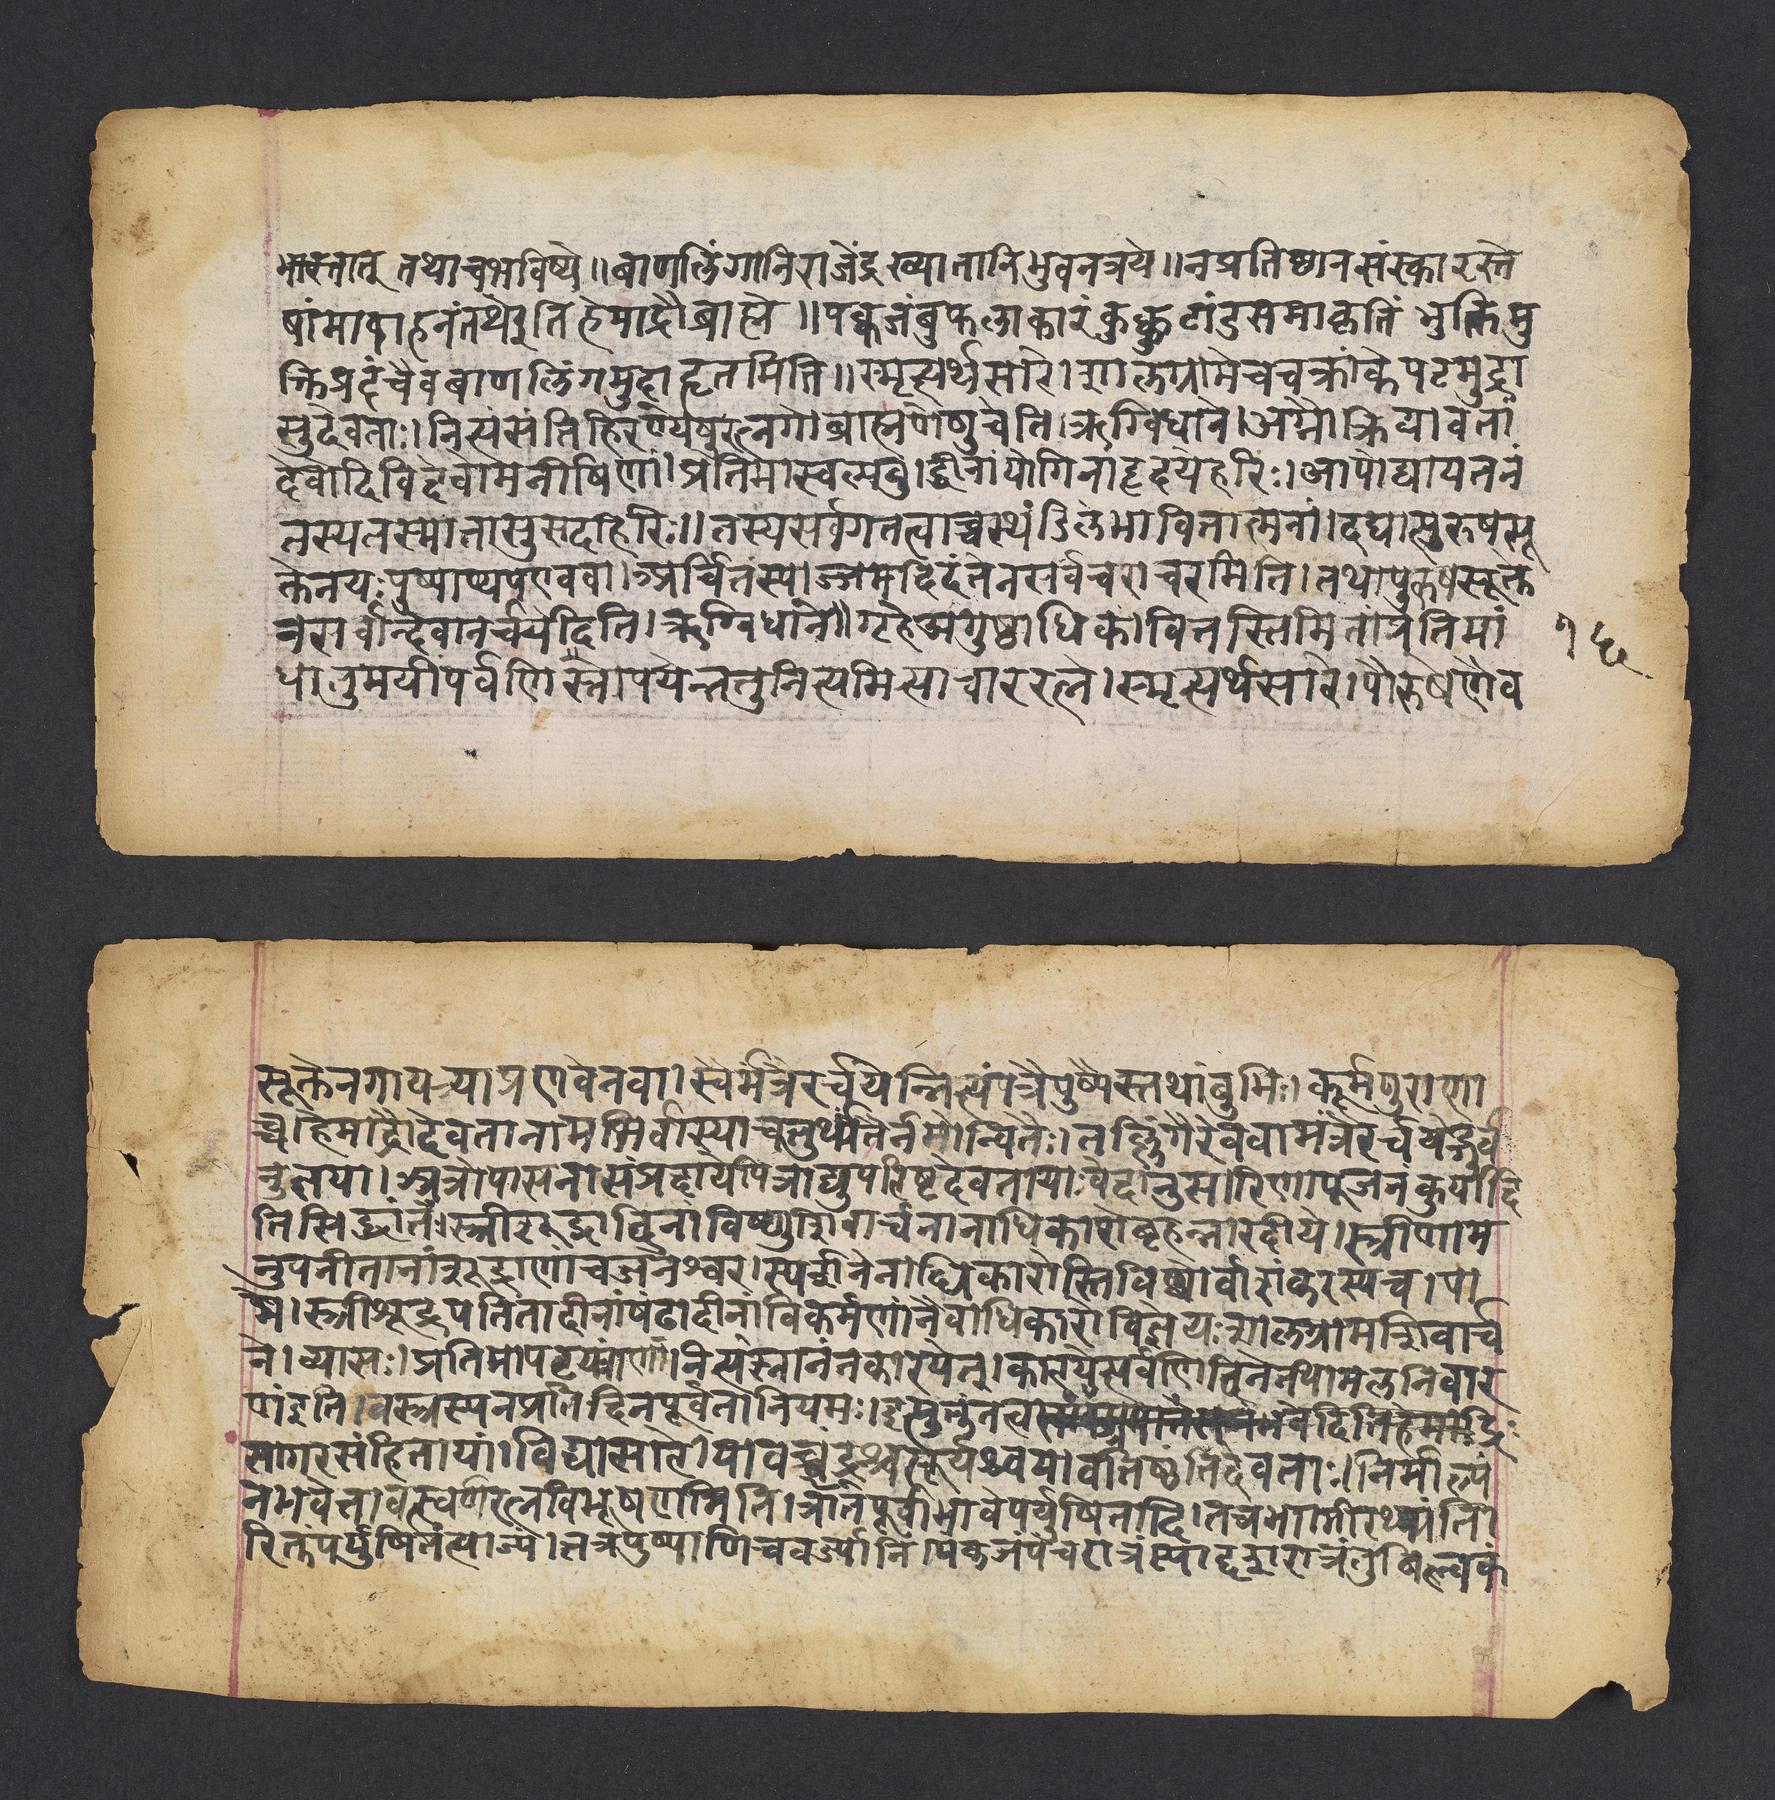 भास्तातु तथाचभविष्ये॥बाणलिंगानिराजेंद्रख्यातानिभुवनत्रये॥नप्रतिष्ठानसंस्कारस्ते
षांमावाहनंतथेइतिहेमाद्रौब्राह्मे॥पक्वजंबुफलाकारंकुक्कुटांडसमाकृतिं भुक्तिमु
क्तिप्रदंचैवबाणलिंगमुदाहृतमिति॥स्मृत्यर्थसारे।शालग्रामेचचक्रांकेपटमुद्रा
सुदेवताः।नित्यंसंतिहिरण्येषुरत्नगोब्राह्मणेषुचेति।ऋग्विधाने।अग्नौक्रियावतां
देवोदिविदेवोमनीषिणां।प्रतिमास्वल्पबुद्धीनांयोगिनांहृदयेहरिः।आपोह्यायतनं
तस्यतस्मात्तासुसदाहरिः॥तस्यसर्वगतत्वाच्चस्थंडिलेभावितात्मनां।दद्यात्पुरुषसू
क्तेनयःपुष्पाण्यपएववा।अर्चितंस्याज्जगदिदंतेनसर्वंचराचरमिति।तथापुरुषसूक्ते
नैरार्वान्देवानर्चयेदिति।ऋग्विधाने॥गृहेअंगुष्ठाधिकां वितस्तिमितांप्रतिमां
धातुमयींपर्वणिस्नापयेन्नतुनित्यमित्याचाररत्ने।स्मृत्यर्थसारे।पौरुषेणैव
१५
सूक्तेनगायत्र्याप्रणवेनवा।स्वैर्मंत्रैरर्चयेन्नित्यंपत्रैपुष्पैस्तथांबुभिः। कूर्मपुराणा
च्चहेमाद्रौदेवतानामभिर्वास्याच्चतुर्थ्यंतैर्नमोन्वितैः।तल्लिंगैरेववामंत्रैरर्चयेद्गुर्व
नुज्ञया।अत्रोपासनासंप्रदायेपित्राद्युपदिष्टदेवतायाःवेदानुसारिणापूजनंकुर्यादि
तिसिद्धांतः।स्त्रीशूद्राविनाविष्णुशिवार्चनानाधिकारोबृहन्नारदीये।स्त्रीणाम
नुपनीतानांशूद्राणांचजनेश्वर।स्पर्शनेनाधिकारोस्तिविष्णोर्वाशंकरस्यच।पा
द्मे।स्त्रीशूद्रपतितादीनांषंढादीनांविकर्मणांनैवाधिकारोविज्ञेयःशालग्रामशिवार्च
ने।व्यासः।प्रतिमापट्टयंत्राणां।नित्यंस्नानंनकारयेत्।कारयेत्सर्वणिदिनेतथामलनिवार
णंइति।वस्त्रस्यनप्रतिदिनपूर्वेतोनियमः।
सागरसंहितायां।विद्यासाले।यावच्चंद्रश्चसूर्यश्चयावत्तिष्ठंतिदेवताः।निर्माल्यं
नभवेत्तावत्स्वर्णरत्नविभूषणमिति।ज्ञातपूर्वाभावेपर्युषितादि।तच्चभागीरथ्यांति
रिक्तपर्युषितंत्याज्यं।तत्रपुष्पाणिचवर्ज्यानि।पंकजंपंचरात्रंस्याद्दशरात्रंतुबिल्वकं